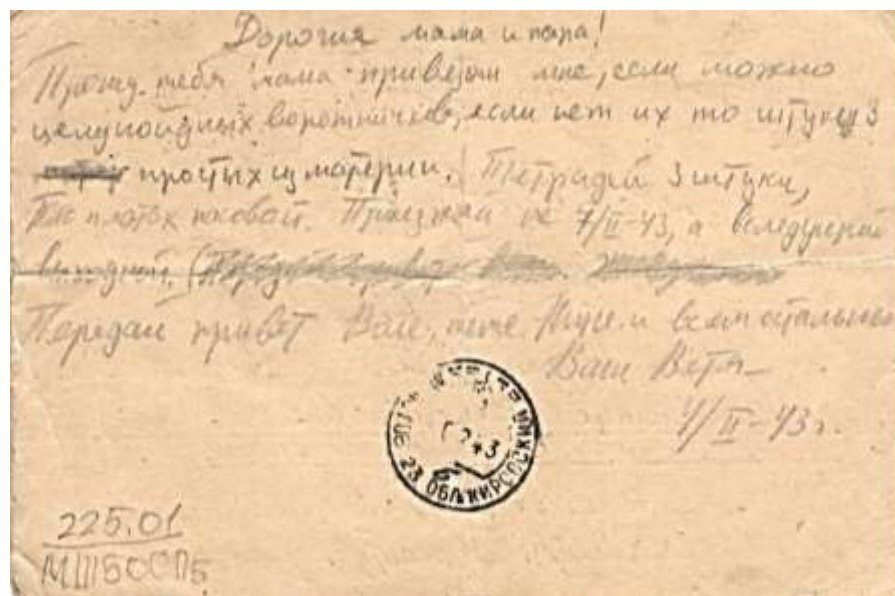 Дорогия мама и папа!
Прошу тебя мама привези мне, если можно
целулоидных воротничков, если нет их то штуки 3
простых из материи. Тетрадей 3 штуки,
платок носовой. Приезжай не 7/II-43, а вследующий
выходной.
Передай привет Вале, тёте Мусе и всем остальным
Ваш Витя
4/II-43г.
23
ОБЛ КИРОВСКИЙ
225.01
МШБООПБ